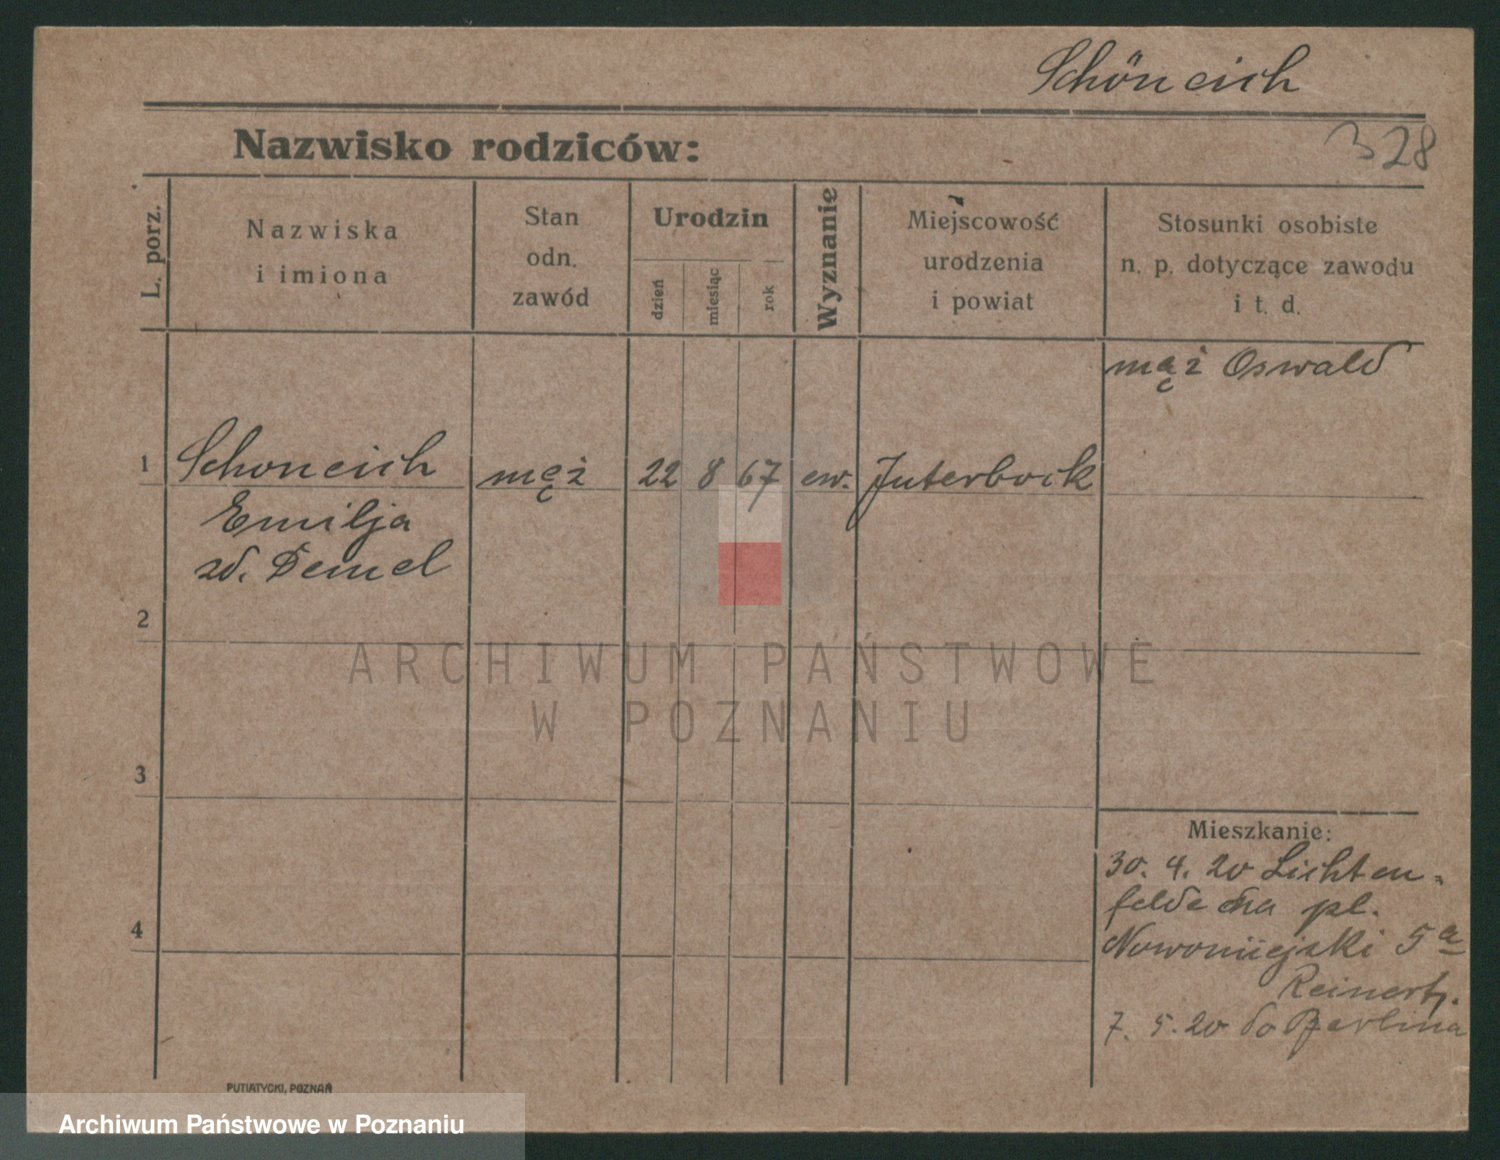 Schöneich
328
Nazwisko rodziców:
L. porz.
Nazwiska
i imiona
Stan
odn.
zawód
Urodzin
dzień
miesiąc
rok
Wyznanie
Miejscowość
urodzenia
i powiat
Stosunki osobiste
n. p. dotyczące zawodu
i t. d.
mąż Oswald
1
Schoneich
męż
22
8
67
ew.
Juterbock
Emilja
zd. Demel
2
ARCHIWUM PAŃSTWOWE
W POZNANIU
3
Mieszkanie:
30. 4. 20 Lichten-
felde na pl.
4
Nowomiejski 5a
Reinert
7. 5. 20 do Berlina
PUTIATYCKI, POZNAŃ
Archiwum Państwowe w Poznaniu